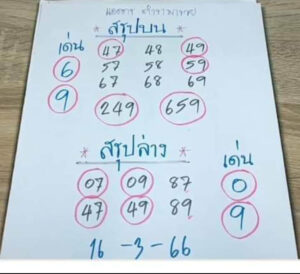 * สรุปบน *
เด่น 47 48 49
6 57 58 59
9 67 68 69
249 659
* สรุปล่าง * เด่น
07 09 87 0
47 49 89 9
16 - 3 - 66